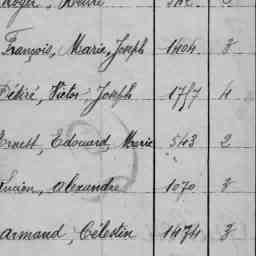 François, Marie, Joseph 1404 3
Désiré, Victor, Joseph 1757 4
Ernest, Edouard, Marie 543 2
Lucien, Alexandre 1070 3
Armand, Célestin 1474 3